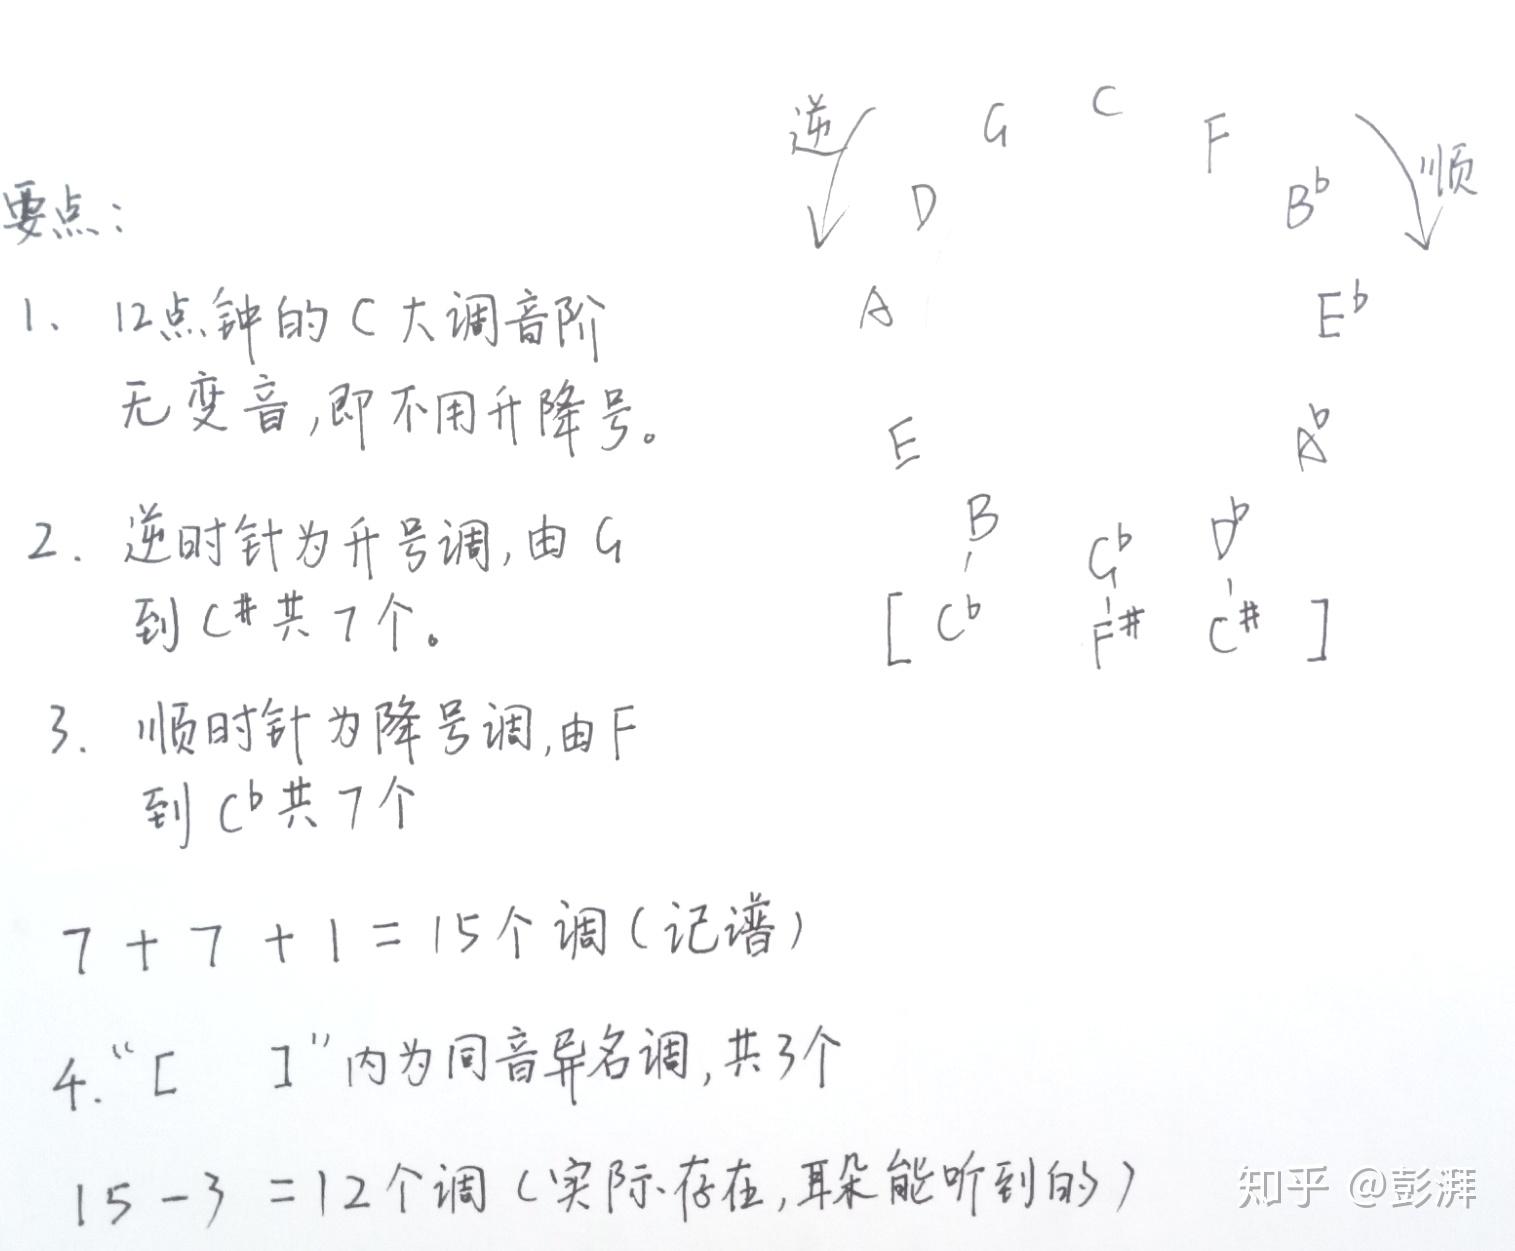 逆
C
G
F
顺
D
B♭
A
E♭
E
A♭
B
G♭
D♭
[ C♭ F# C# ]
要点：
1. 12点钟的C大调音阶
无变音,即不用升降号。
2. 逆时针为升号调,由G
到C#共7个。
3. 顺时针为降号调,由F
到C♭共7个
7 + 7 + 1 = 15个调(记谱)
4. “[ ]”内为同音异名调,共3个
15 - 3 = 12个调(实际存在,耳朵能听到的)
知乎 @彭湃